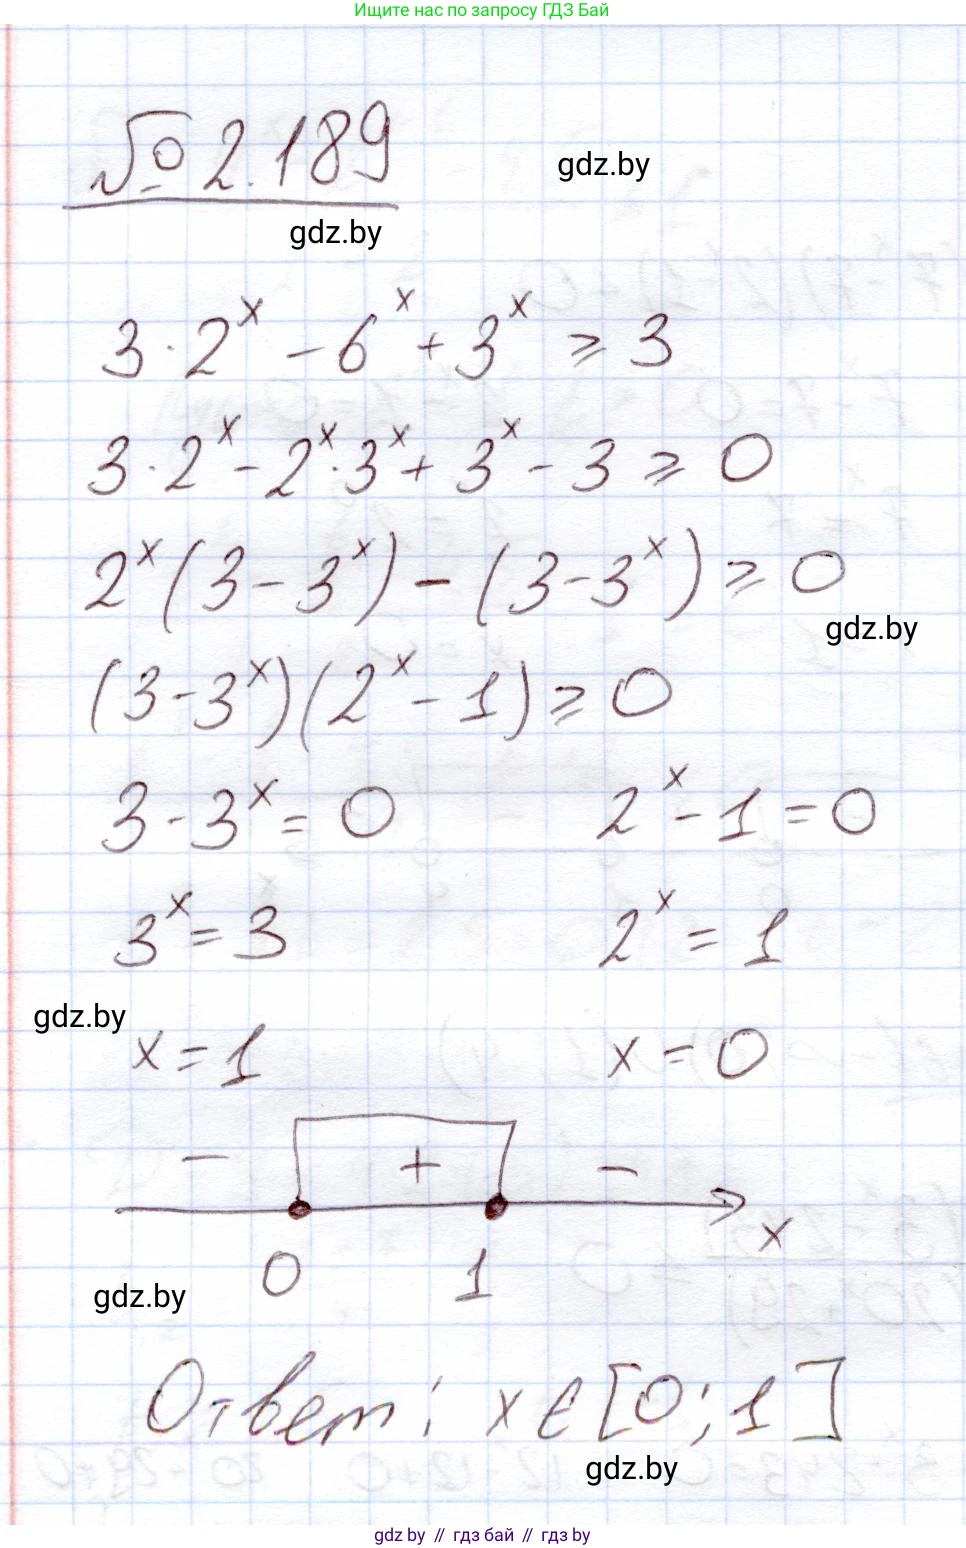 Ищите нас по запросу ГДЗ Бай
№ 2.189
gdz.by
gdz.by
3 · 2^x - 6^x + 3^x ≥ 3
3 · 2^x - 2^x · 3^x + 3^x - 3 ≥ 0
2^x (3 - 3^x) - (3 - 3^x) ≥ 0
gdz.by
(3 - 3^x)(2^x - 1) ≥ 0
3 - 3^x = 0    2^x - 1 = 0
3^x = 3    2^x = 1
gdz.by
x = 1    x = 0
-    +    -
x
0    1
gdz.by
Ответ: x ∈ [0; 1]
gdz.by
gdz by // гдз бай // gdz by